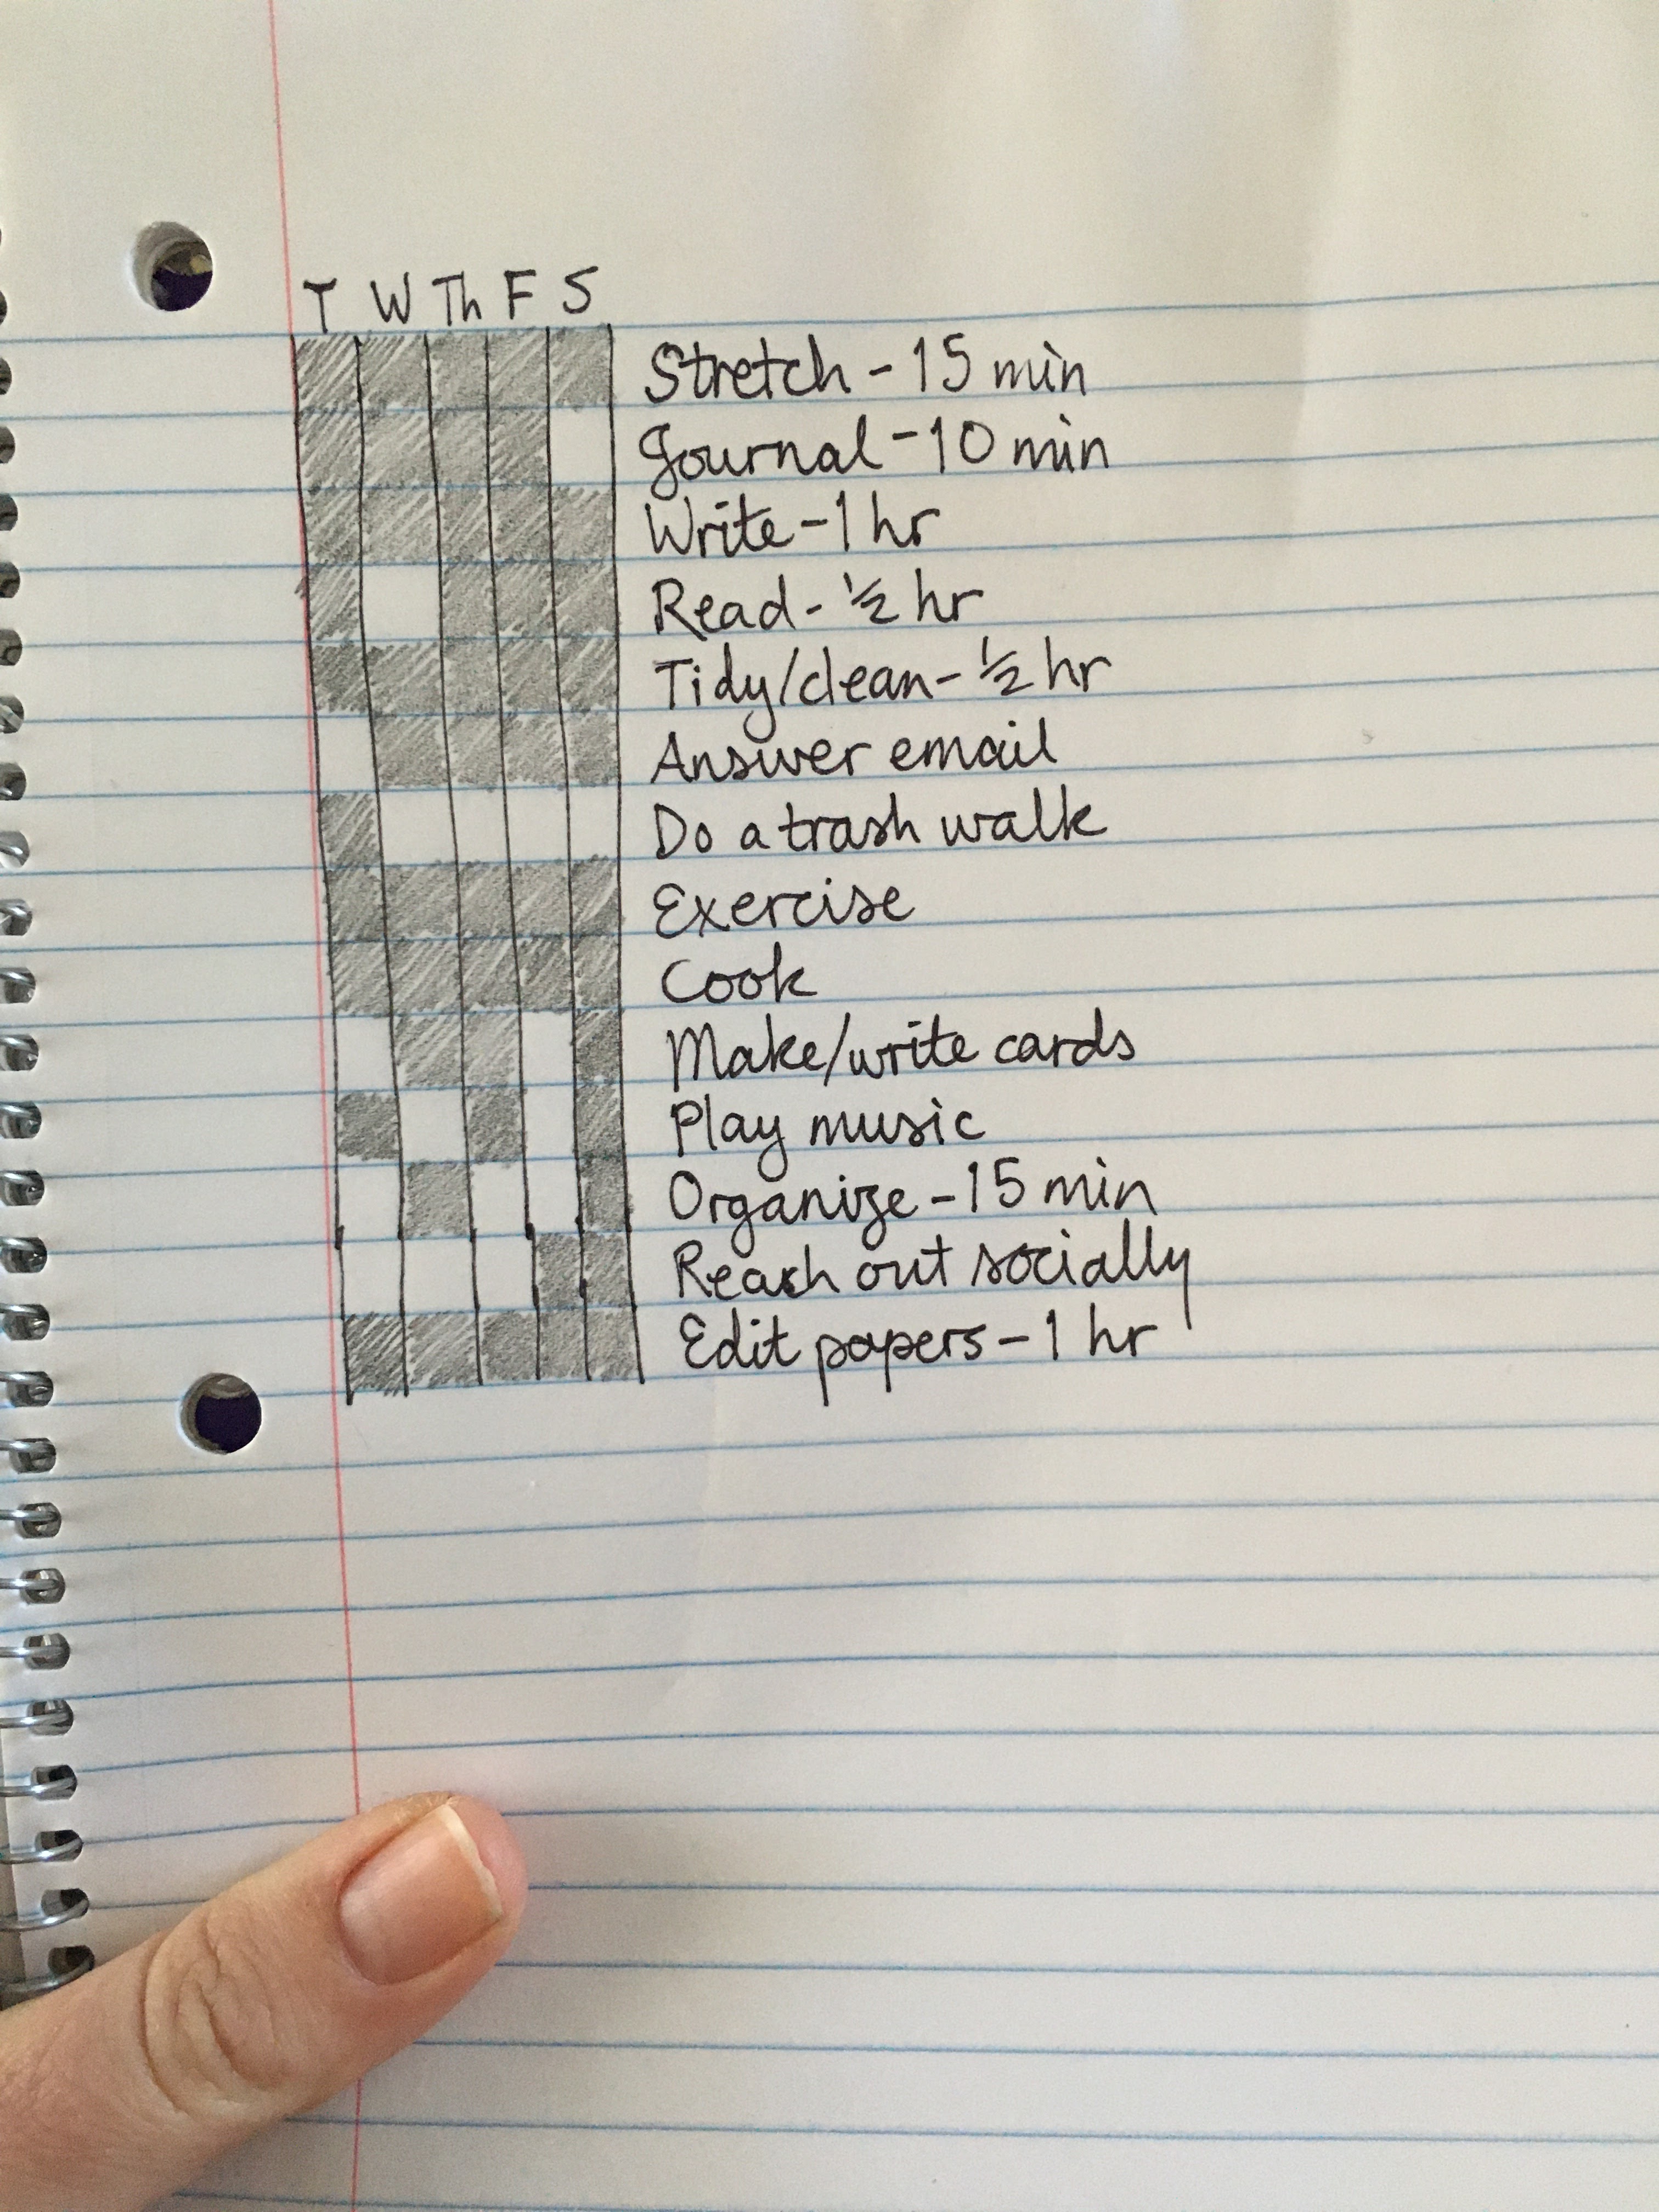 T W Th F S
Stretch - 15 min
Journal - 10 min
Write - 1 hr
Read - ½ hr
Tidy/clean - ½ hr
Answer email
Do a trash walk
Exercise
Cook
Make/write cards
Play music
Organize - 15 min
Reach out socially
Edit papers - 1 hr